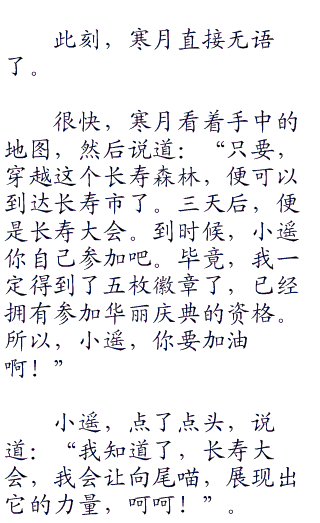 此刻，寒月直接无语
了。
很快，寒月看着手中的
地图，然后说道：“只要，
穿越这个长寿森林，便可以
到达长寿市了。三天后，便
是长寿大会。到时候，小遥
你自己参加吧。毕竟，我一
定得到了五枚徽章了，已经
拥有参加华丽庆典的资格。
所以，小遥，你要加油
啊！”
小遥，点了点头，说
道：“我知道了，长寿大
会，我会让向尾喵，展现出
它的力量，呵呵！”。